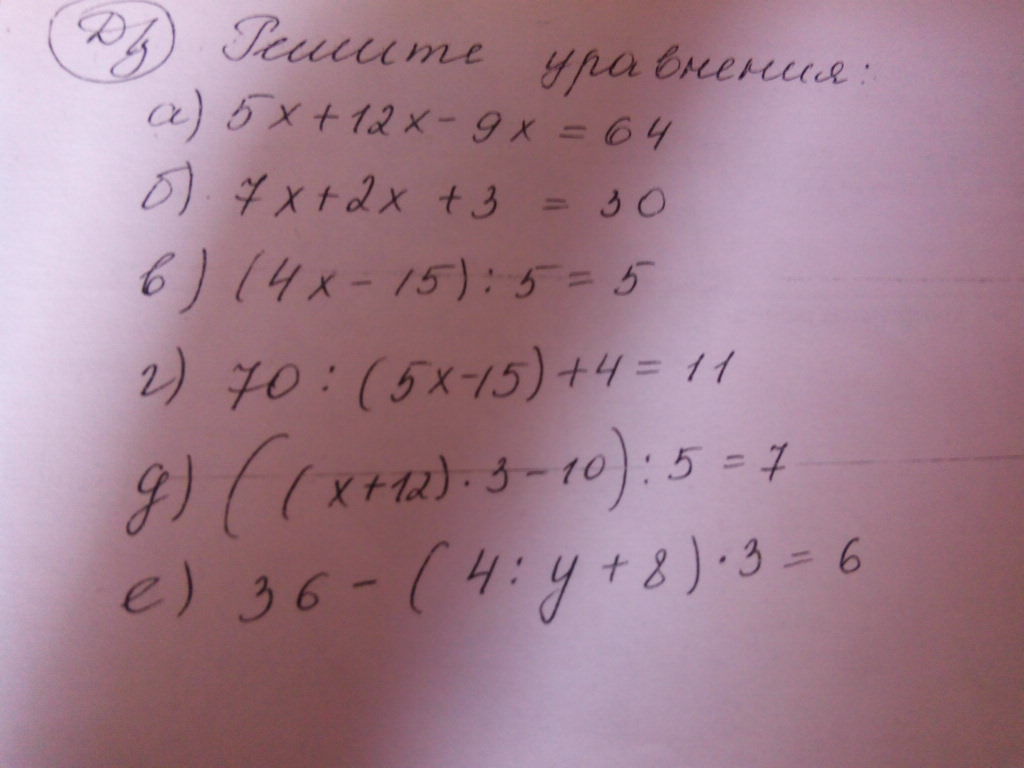 Дз Решите уравнения:
а) 5x+12x-9x=64
б) 7x+2x+3=30
в) (4x-15):5=5
г) 70:(5x-15)+4=11
д) ((x+12)·3-10):5=7
е) 36-(4:y+8)·3=6